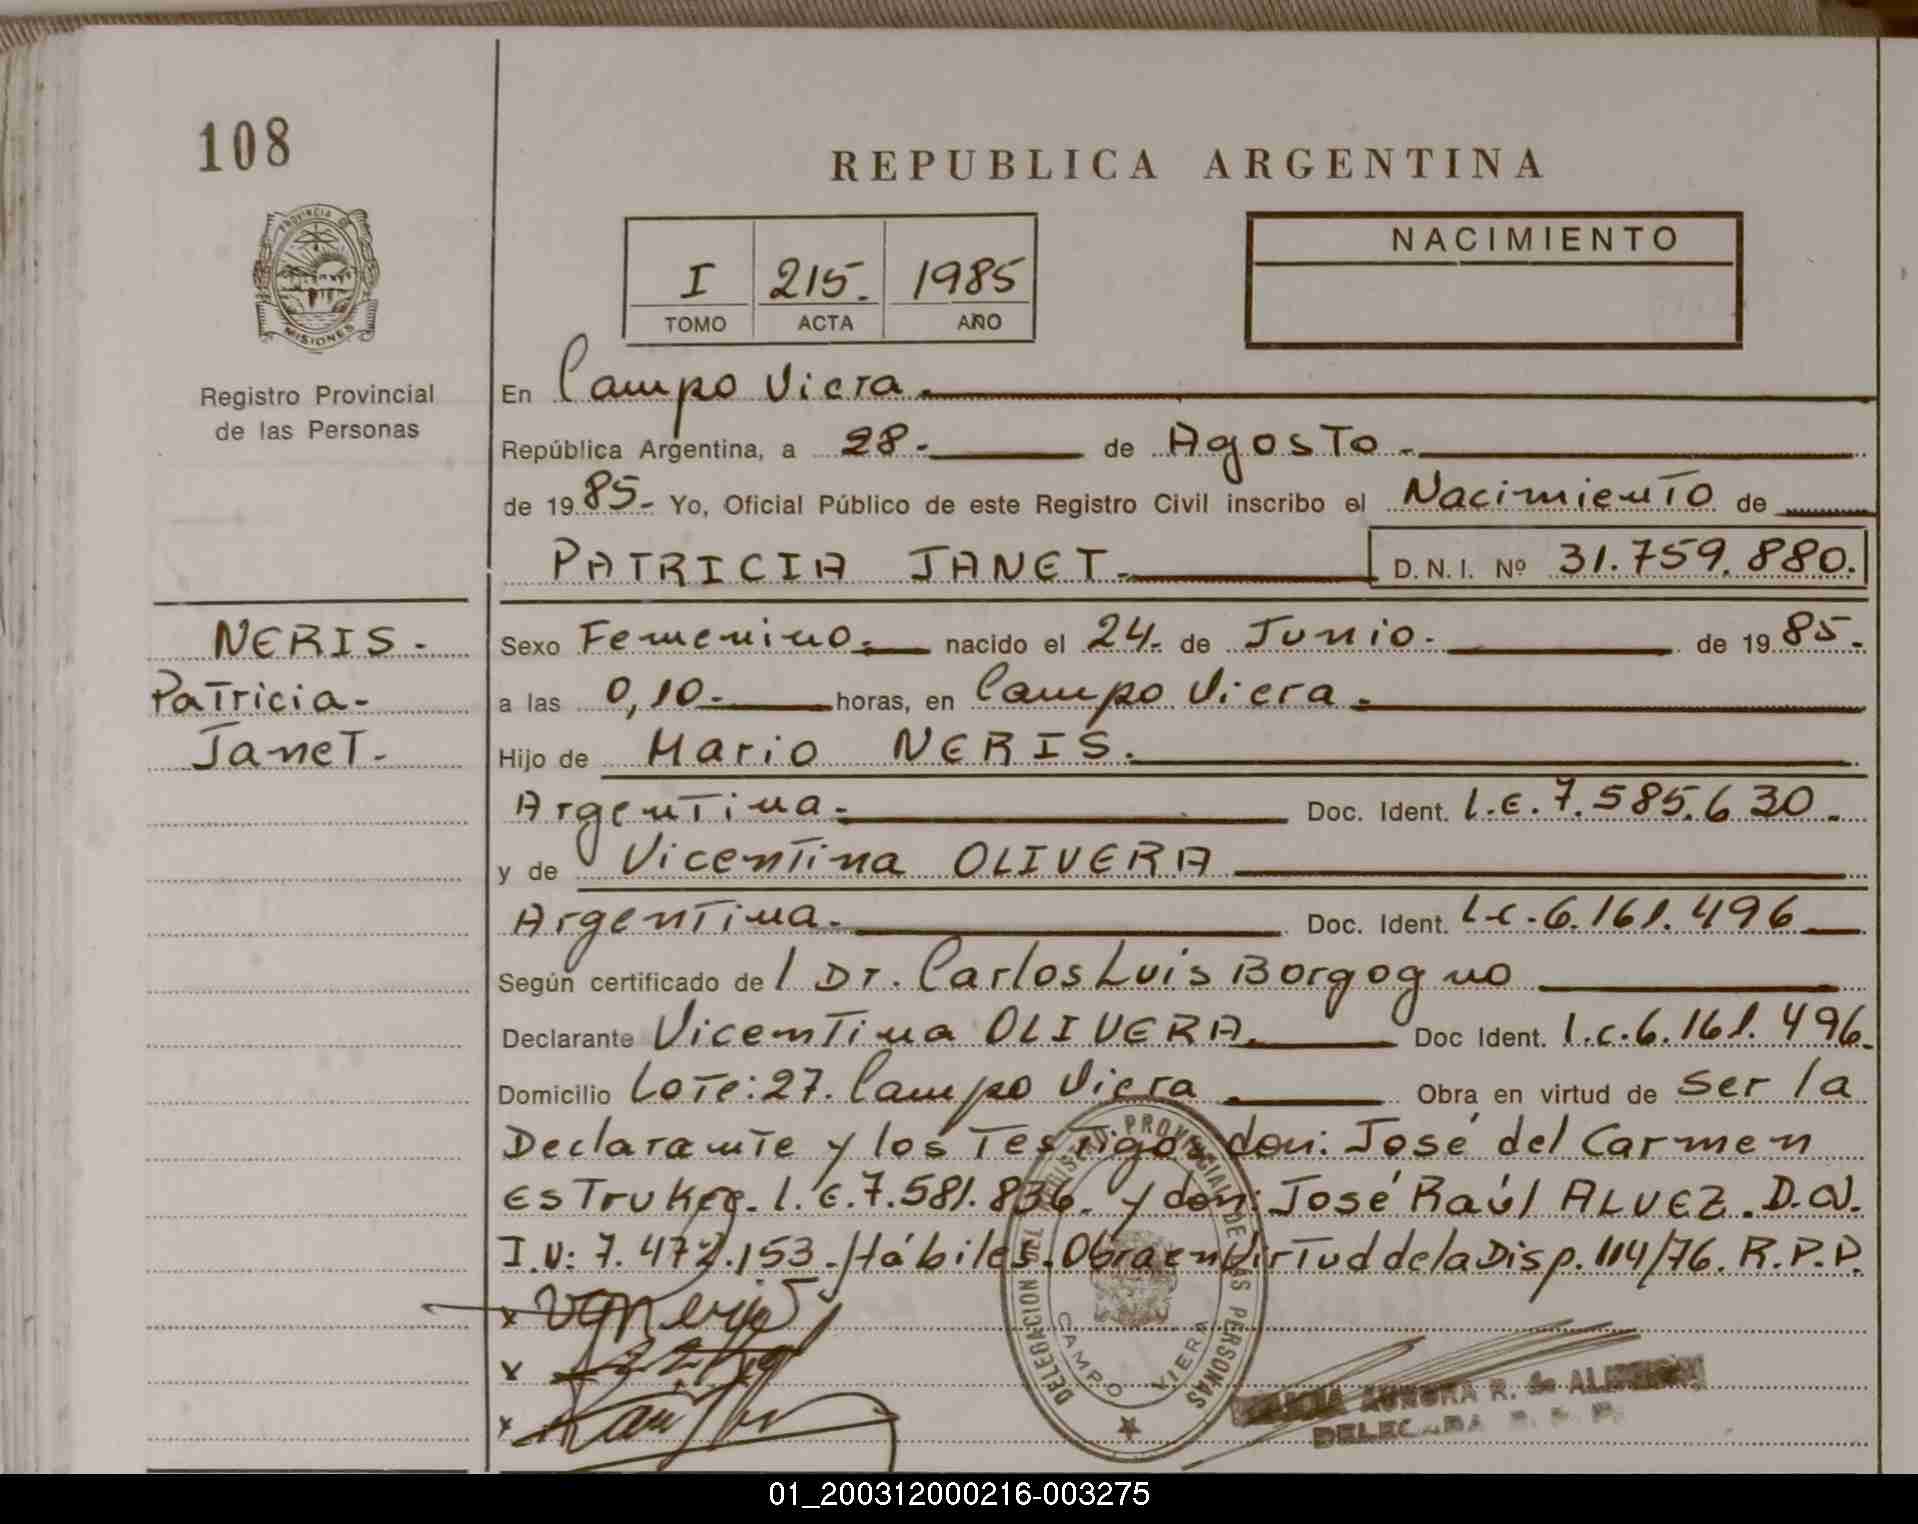 108
REPUBLICA ARGENTINA
PROVINCIA DE
MISIONES
NACIMIENTO
I 215. 1985
TOMO ACTA AÑO
Registro Provincial
de las Personas
En Campo Viera.
República Argentina, a 28.- de Agosto.-
de 1985.- Yo, Oficial Público de este Registro Civil inscribo el Nacimiento de
PATRICIA JANET.- D.N.I. Nº 31.759.880.
NERIS.-
Patricia-
Janet.-
Sexo Femenino.- nacido el 24.- de Junio.- de 1985.-
a las 0,10.- horas, en Campo Viera.-
Hijo de Mario NERIS.-
Argentina.- Doc. Ident. l.e.7.585.630.-
y de Vicentina OLIVERA
Argentina.- Doc. Ident. l.c.6.161.496
Según certificado de l Dr. Carlos Luis Borgogno
Declarante Vicentina OLIVERA. Doc Ident. l.c.6.161.496.
Domicilio Lote: 27. Campo Viera Obra en virtud de ser la
Declarante y los Testigos don: José del Carmen
l.e.7.581.836. y don: José Raúl ALVEZ. D.N.
I.N: 7.472.153.- Hábiles. Obra en virtud de la Disp. 114/76. R.P.P.
x
x
x
DELEGACION DEL REGISTRO PROVINCIAL DE LAS PERSONAS
CAMPO VIERA
AURORA R. de
DELEGADA R. P. P.
01_200312000216-003275